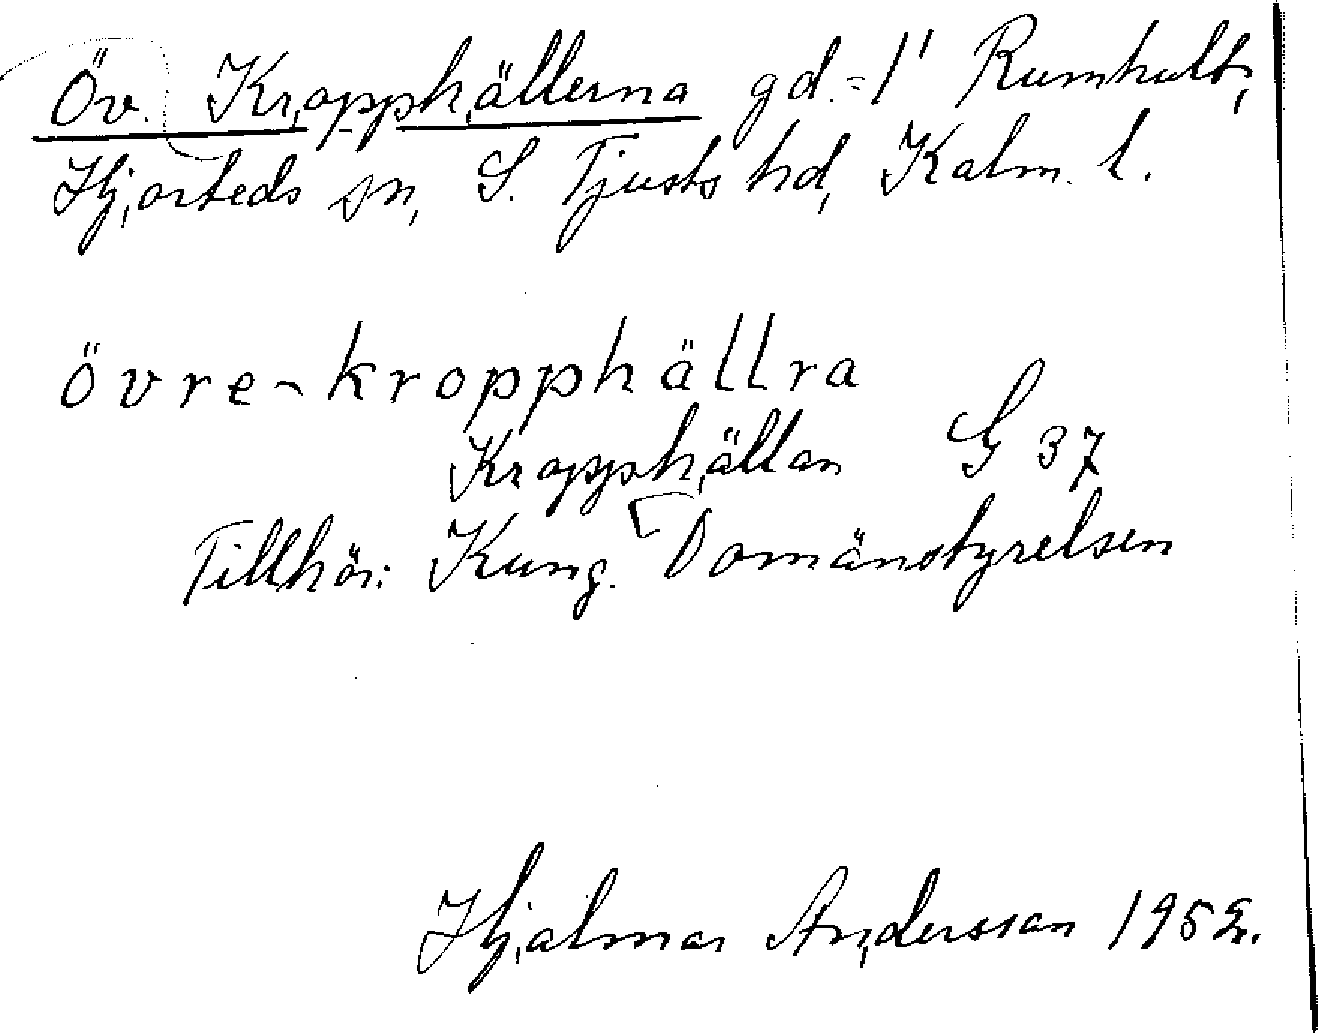 Öv. Kropphällerna gd. = 1' Rumhult,
Hjorteds sn, S. Tjusts hd, Kalm. l.
övre-kropphällra
Kropphällan G 37
Tillhör: Kung. Domänstyrelsen
Hjalmar Andersson 1952.